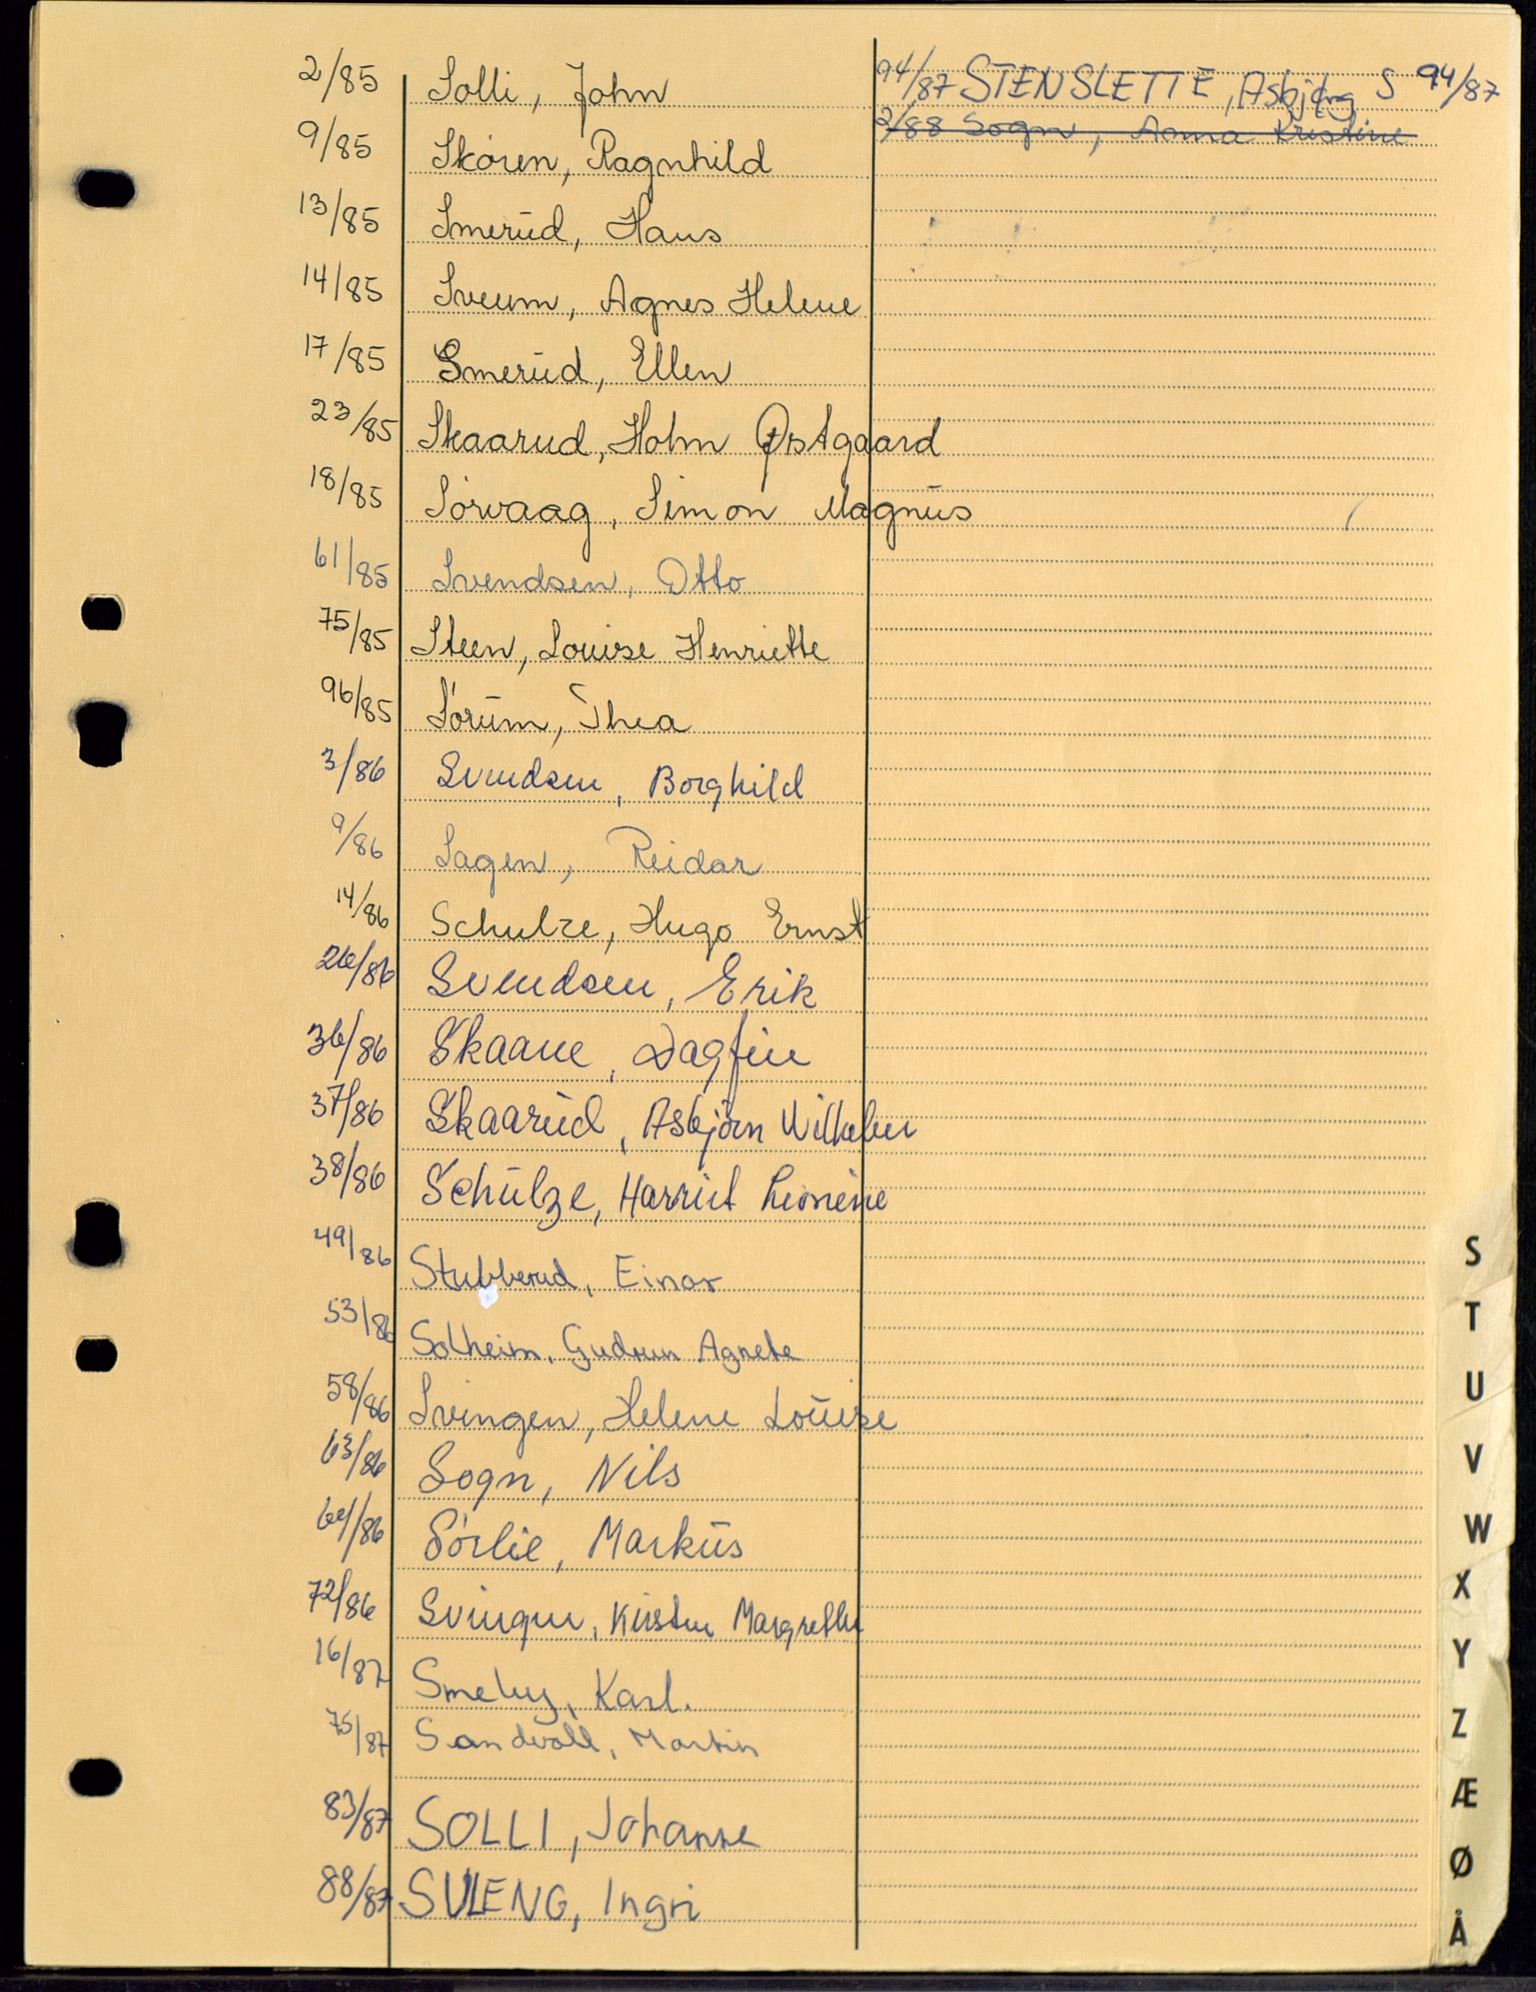 2/85 Solli, John
9/85 Skören, Ragnhild
13/85 Smerud, Hans
14/85 Sveum, Agnes Helene
17/85 Smerud, Ellen
23/85 Skaarud, Holm Østgaard
18/85 Sörvaag, Simon Magnus
61/85 Svendsen, Otto
75/85 Steen, Louise Henriette
96/85 Sörum, Thea
3/86 Svendsen, Borghild
9/86 Sagen, Reidar
14/86 Schulze, Hugo Ernst
26/86 Svendsen, Erik
36/86 Skaane, Dagfin
37/86 Skaarud, Asbjörn Wilhelm
38/86 Schulze, Harriet
49/86 Stubberud, Einar
53/86 Solheim, Gudrun Agnete
58/86 Svingen, Helene Louise
63/86 Sogn, Nils
64/86 Sörlie, Markus
72/86 Svingen, Kirsten Margrethe
16/87 Smeby, Karl.
75/87 Sandvoll, Martin
83/87 SOLLI, Johanne
88/87 SULENG, Ingri
94/87 STENSLETTE, Asbjørg S 94/87
2/88 Sogn, Anna Kristine
S
T
U
V
W
X
Y
Z
Æ
Ø
Å